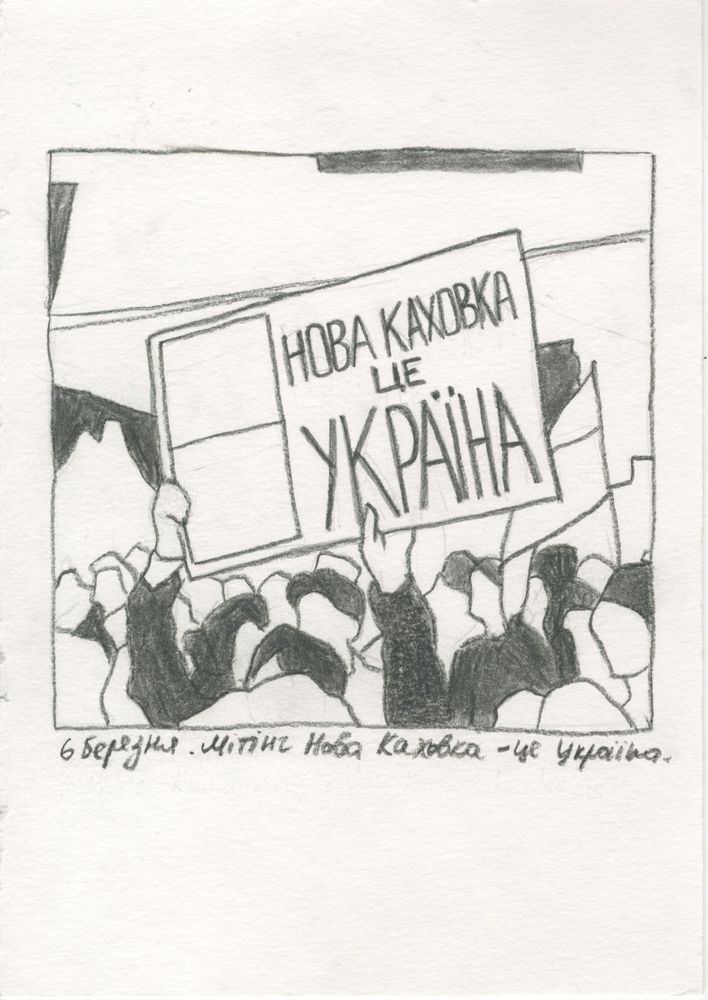 НОВА КАХОВКА
ЦЕ
УКРАЇНА
6 березня. Мітінг Нова Каховка - це Україна.